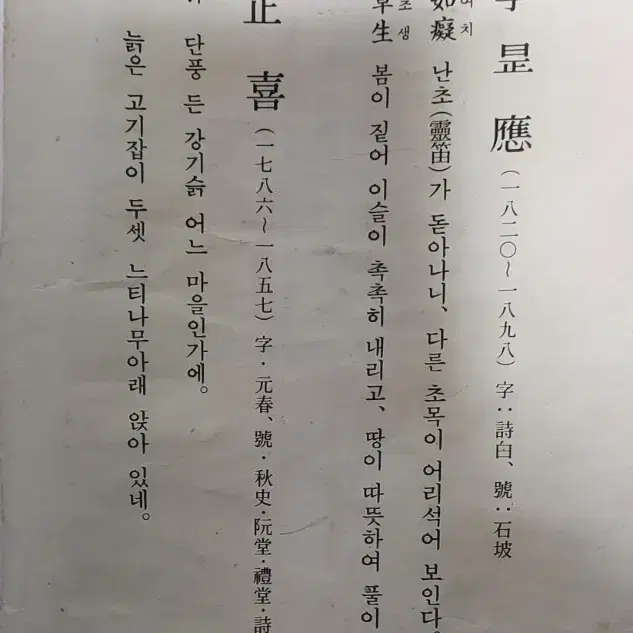 昰應 (一八二〇~一八九八) 字:詩白、號:石坡
如癡 난초(靈笛)가 돋아나니、다른 초목이 어리석어 보인다。
여치
草生 봄이 짙어 이슬이 촉촉히 내리고、땅이 따뜻하여 풀이
초생
正喜 (一七八六~一八五七) 字·元春、號·秋史·阮堂·禮堂·詩
단풍 든 강기슭 어느 마을인가에。
늙은 고기잡이 두셋 느티나무아래 앉아 있네。